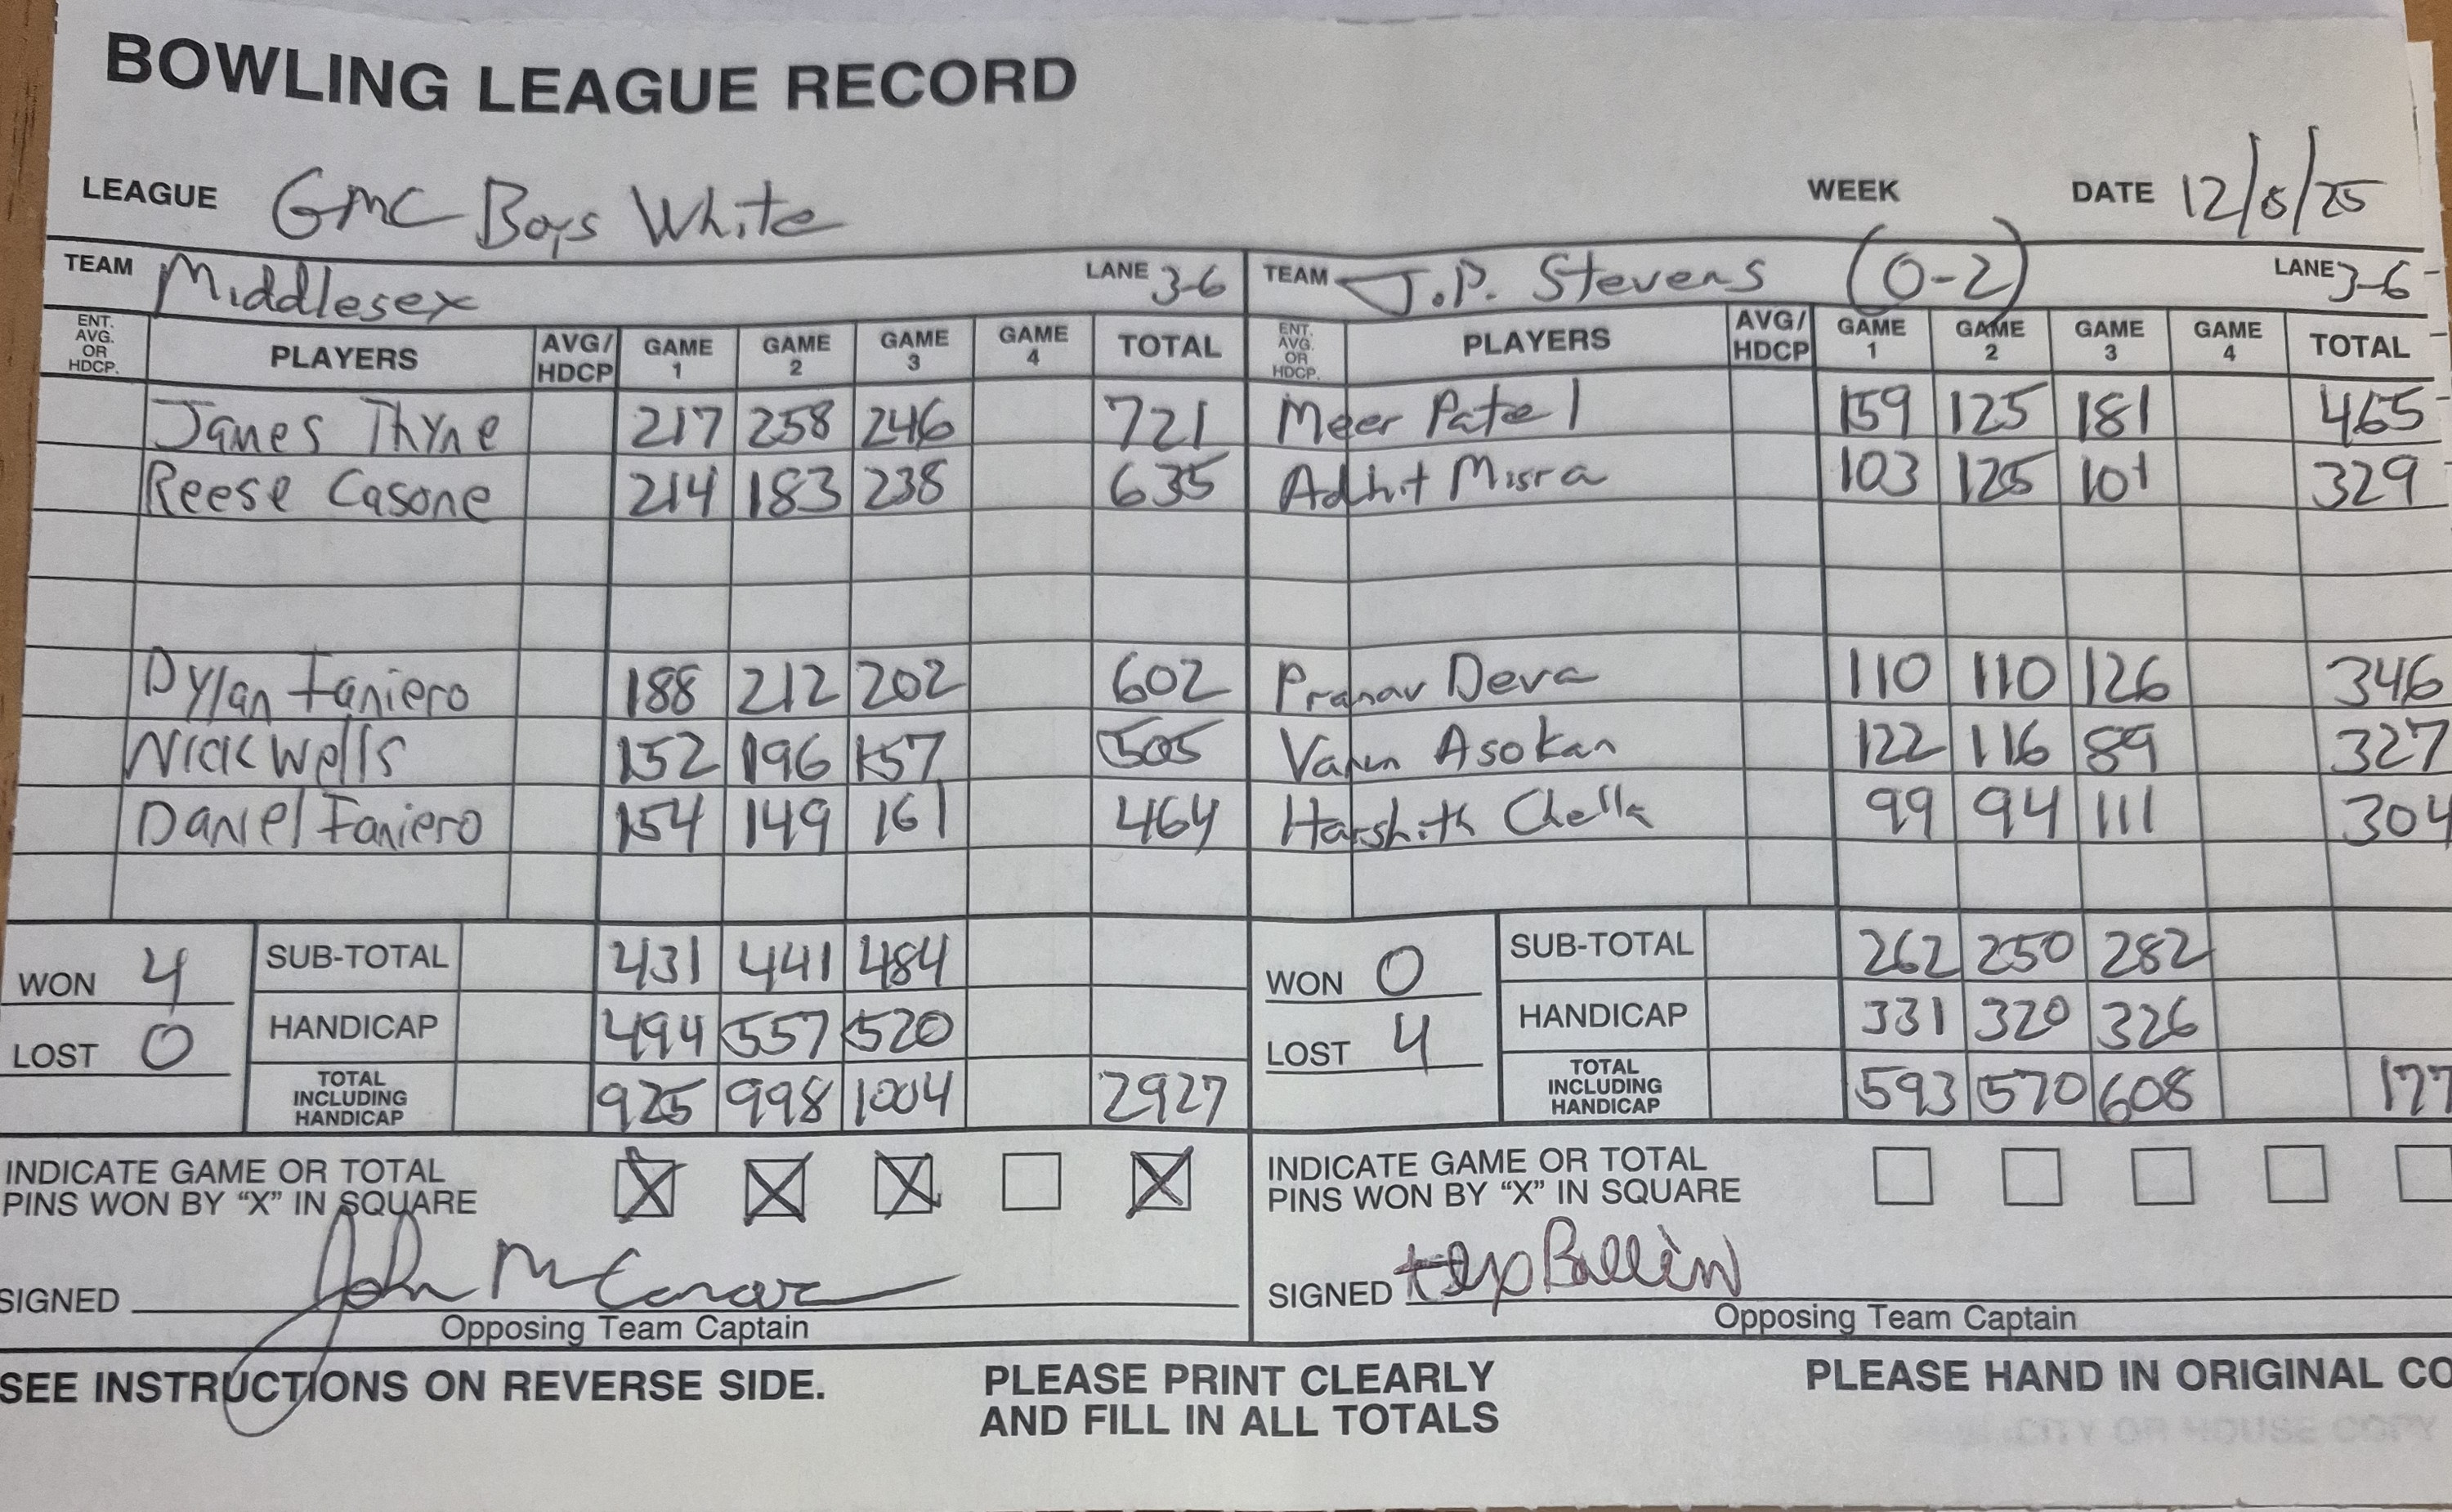 BOWLING LEAGUE RECORD
LEAGUE GMC Boys White WEEK DATE 12/8/25
TEAM Middlesex LANE 3-6 TEAM J.P. Stevens (0-2) LANE 3-6
ENT. AVG. OR HDCP. PLAYERS AVG/ HDCP GAME 1 GAME 2 GAME 3 GAME 4 TOTAL ENT. AVG. OR HDCP. PLAYERS AVG/ HDCP GAME 1 GAME 2 GAME 3 GAME 4 TOTAL
James Thyne 217 258 246 721 Meer Patel 159 125 181 465
Reese Casone 214 183 238 635 Adhit Misra 103 125 101 329
Dylan Faniero 188 212 202 602 Pranav Deva 110 110 126 346
Nick Wells 152 196 157 505 Varun Asokan 122 116 89 327
Daniel Faniero 154 149 161 464 Harshith Chella 99 94 111 304
WON 4 SUB-TOTAL 431 441 484 WON 0 SUB-TOTAL 262 250 282
LOST 0 HANDICAP 494 557 520 LOST 4 HANDICAP 331 320 326
TOTAL INCLUDING HANDICAP 925 998 1004 2927 TOTAL INCLUDING HANDICAP 593 570 608 177
INDICATE GAME OR TOTAL PINS WON BY “X” IN SQUARE X X X X INDICATE GAME OR TOTAL PINS WON BY “X” IN SQUARE
SIGNED John SIGNED
Opposing Team Captain Opposing Team Captain
SEE INSTRUCTIONS ON REVERSE SIDE. PLEASE PRINT CLEARLY AND FILL IN ALL TOTALS PLEASE HAND IN ORIGINAL CO
CITY OR HOUSE COPY